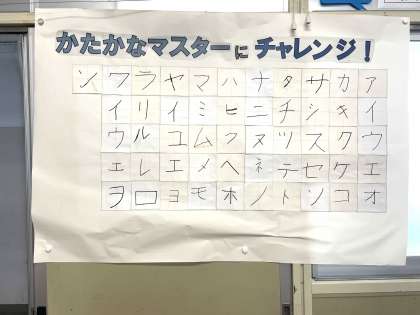 かたかなマスターに チャレンジ！
アイウエオ
カキクケコ
サシスセソ
タチツテト
ナニヌネノ
ハヒフヘホ
マミムメモ
ヤイユエヨ
ラリルレロ
ワイウエヲ
ン